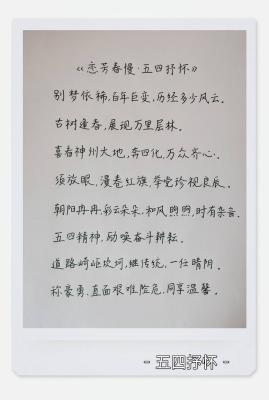 《恋芳春慢·五四抒怀》
别梦依稀,百年巨变,历经多少风云。
古树逢春,展现万里层林。
喜看神州大地,奔四化,万众齐心。
须放眼,漫卷红旗,举觉珍视良辰。
朝阳冉冉彩云朵朵,和风煦煦,时有杂音。
五四精神,励唤奋斗耕耘。
道路崎岖坎坷,继传统,一任晴阴。
称豪勇、直面艰难险危,同享温馨。
- 五四抒怀 -